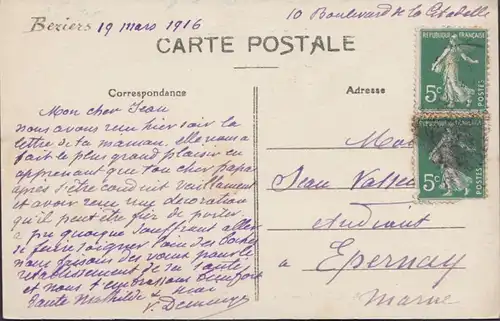 Beziers 19 mars 1916
10 Boulevard de la Citadelle
CARTE POSTALE
Correspondance
Adresse
Mon cher Jean
nous avons reçu hier soir la
lettre de ta maman, elle nous a
fait le plus grand plaisir en
apprenant que ton cher papa
après s'être conduit vaillament
et avoir reçu une décoration
qu'il peut être fier de porter
a pu quoique souffrant aller
se faire soigner loin des
nous faisons des vœux pour le
rétablissement de sa santé
et nous t'embrassons bien fort
tante Mathilde &
RÉPUBLIQUE FRANÇAISE
5c POSTES
5c POSTES
Jean
Étudiant
à Epernay
Marne